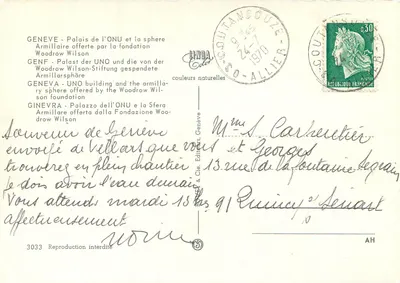 GENEVE - Palais de l'ONU et la sphere
Armillaire offerte par la fondation
Woodrow Wilson
GENF - Palast der UNO und die von der
Woodrow Wilson-Stiftung gespendete
Armillarsphäre
GENEVA - UNO building and the armilla-
ry sphere offered by the Woodrow Wil-
son foundation
GINEVRA - Palazzo dell'ONU e la Sfera
Armillare offerta dalla Fondazione Woo-
drow Wilson
couleurs naturelles
1970
ALLIER
0,30
REPUBLIQUE FRANÇAISE
Souvenir de Genève
envoyé de Villars que vous
trouverez en plein chantier
je dois avoir l'eau demain
Vous attends mardi 13
affectueusement
Mme S. Carpentier
et Georges
13 rue de la fontaine
91 Quincy s/ Senart
3033 Reproduction interdite
AH